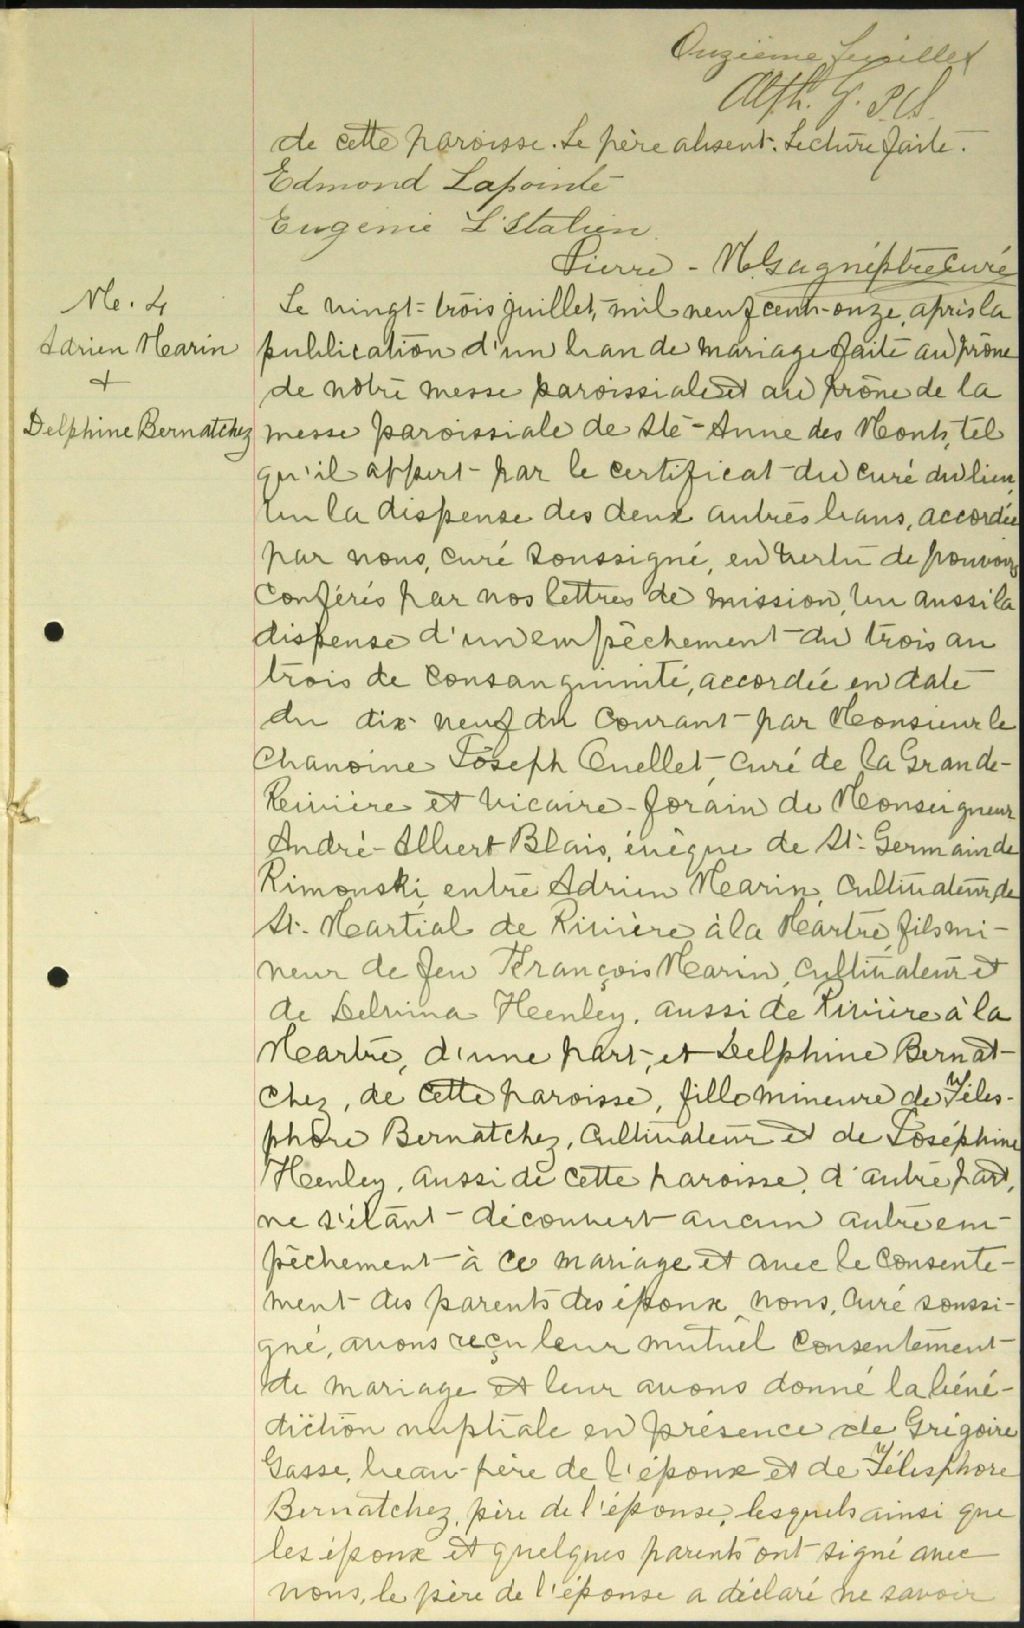 Onzième feuillet
Alph. G. P.C.S.
de cette paroisse. Le père absent. Lecture faite.
Edmond Lapointe
Eugénie L'Italien
Pierre - M Gagné, ptre curé
M. 4
Adrien Marin
+
Delphine Bernatchez
Le vingt-trois juillet, mil neuf cent-onze, après la
publication d'un ban de mariage faite au prône
de notre messe paroissiale et au prône de la
messe paroissiale de Ste-Anne des Monts, tel
qu'il appert par le certificat du curé du lieu,
vu la dispense des deux autres bans, accordée
par nous, curé soussigné, en vertu de pouvoirs
conférés par nos lettres de mission, vu aussi la
dispense d'un empêchement du trois au
trois de consanguinité, accordée en date
du dix-neuf du courant par Monsieur le
Chanoine Joseph Ouellet, curé de la Grande-
Rivière et Vicaire-forain de Monseigneur
André-Albert Blais, évêque de St-Germain de
Rimouski, entre Adrien Marin, cultivateur, de
St-Martial de Rivière à la Martre, fils mi-
neur de feu François Marin, cultivateur et
de Delvina Henley, aussi de Rivière à la
Martre, d'une part, et Delphine Bernat-
chez, de cette paroisse, fille mineure de Téles-
phore Bernatchez, cultivateur et de Joséphine
Henley, aussi de cette paroisse, d'autre part,
ne s'étant découvert aucun autre em-
pêchement à ce mariage et avec le consente-
ment des parents des époux, nous, curé soussi-
gné, avons reçu leur mutuel consentement
de mariage et leur avons donné la béné-
diction nuptiale en présence de Grégoire
Gasse, beau-père de l'époux et de Télesphore
Bernatchez, père de l'épouse, lesquels ainsi que
les époux et quelques parents ont signé avec
nous, le père de l'épouse a déclaré ne savoir